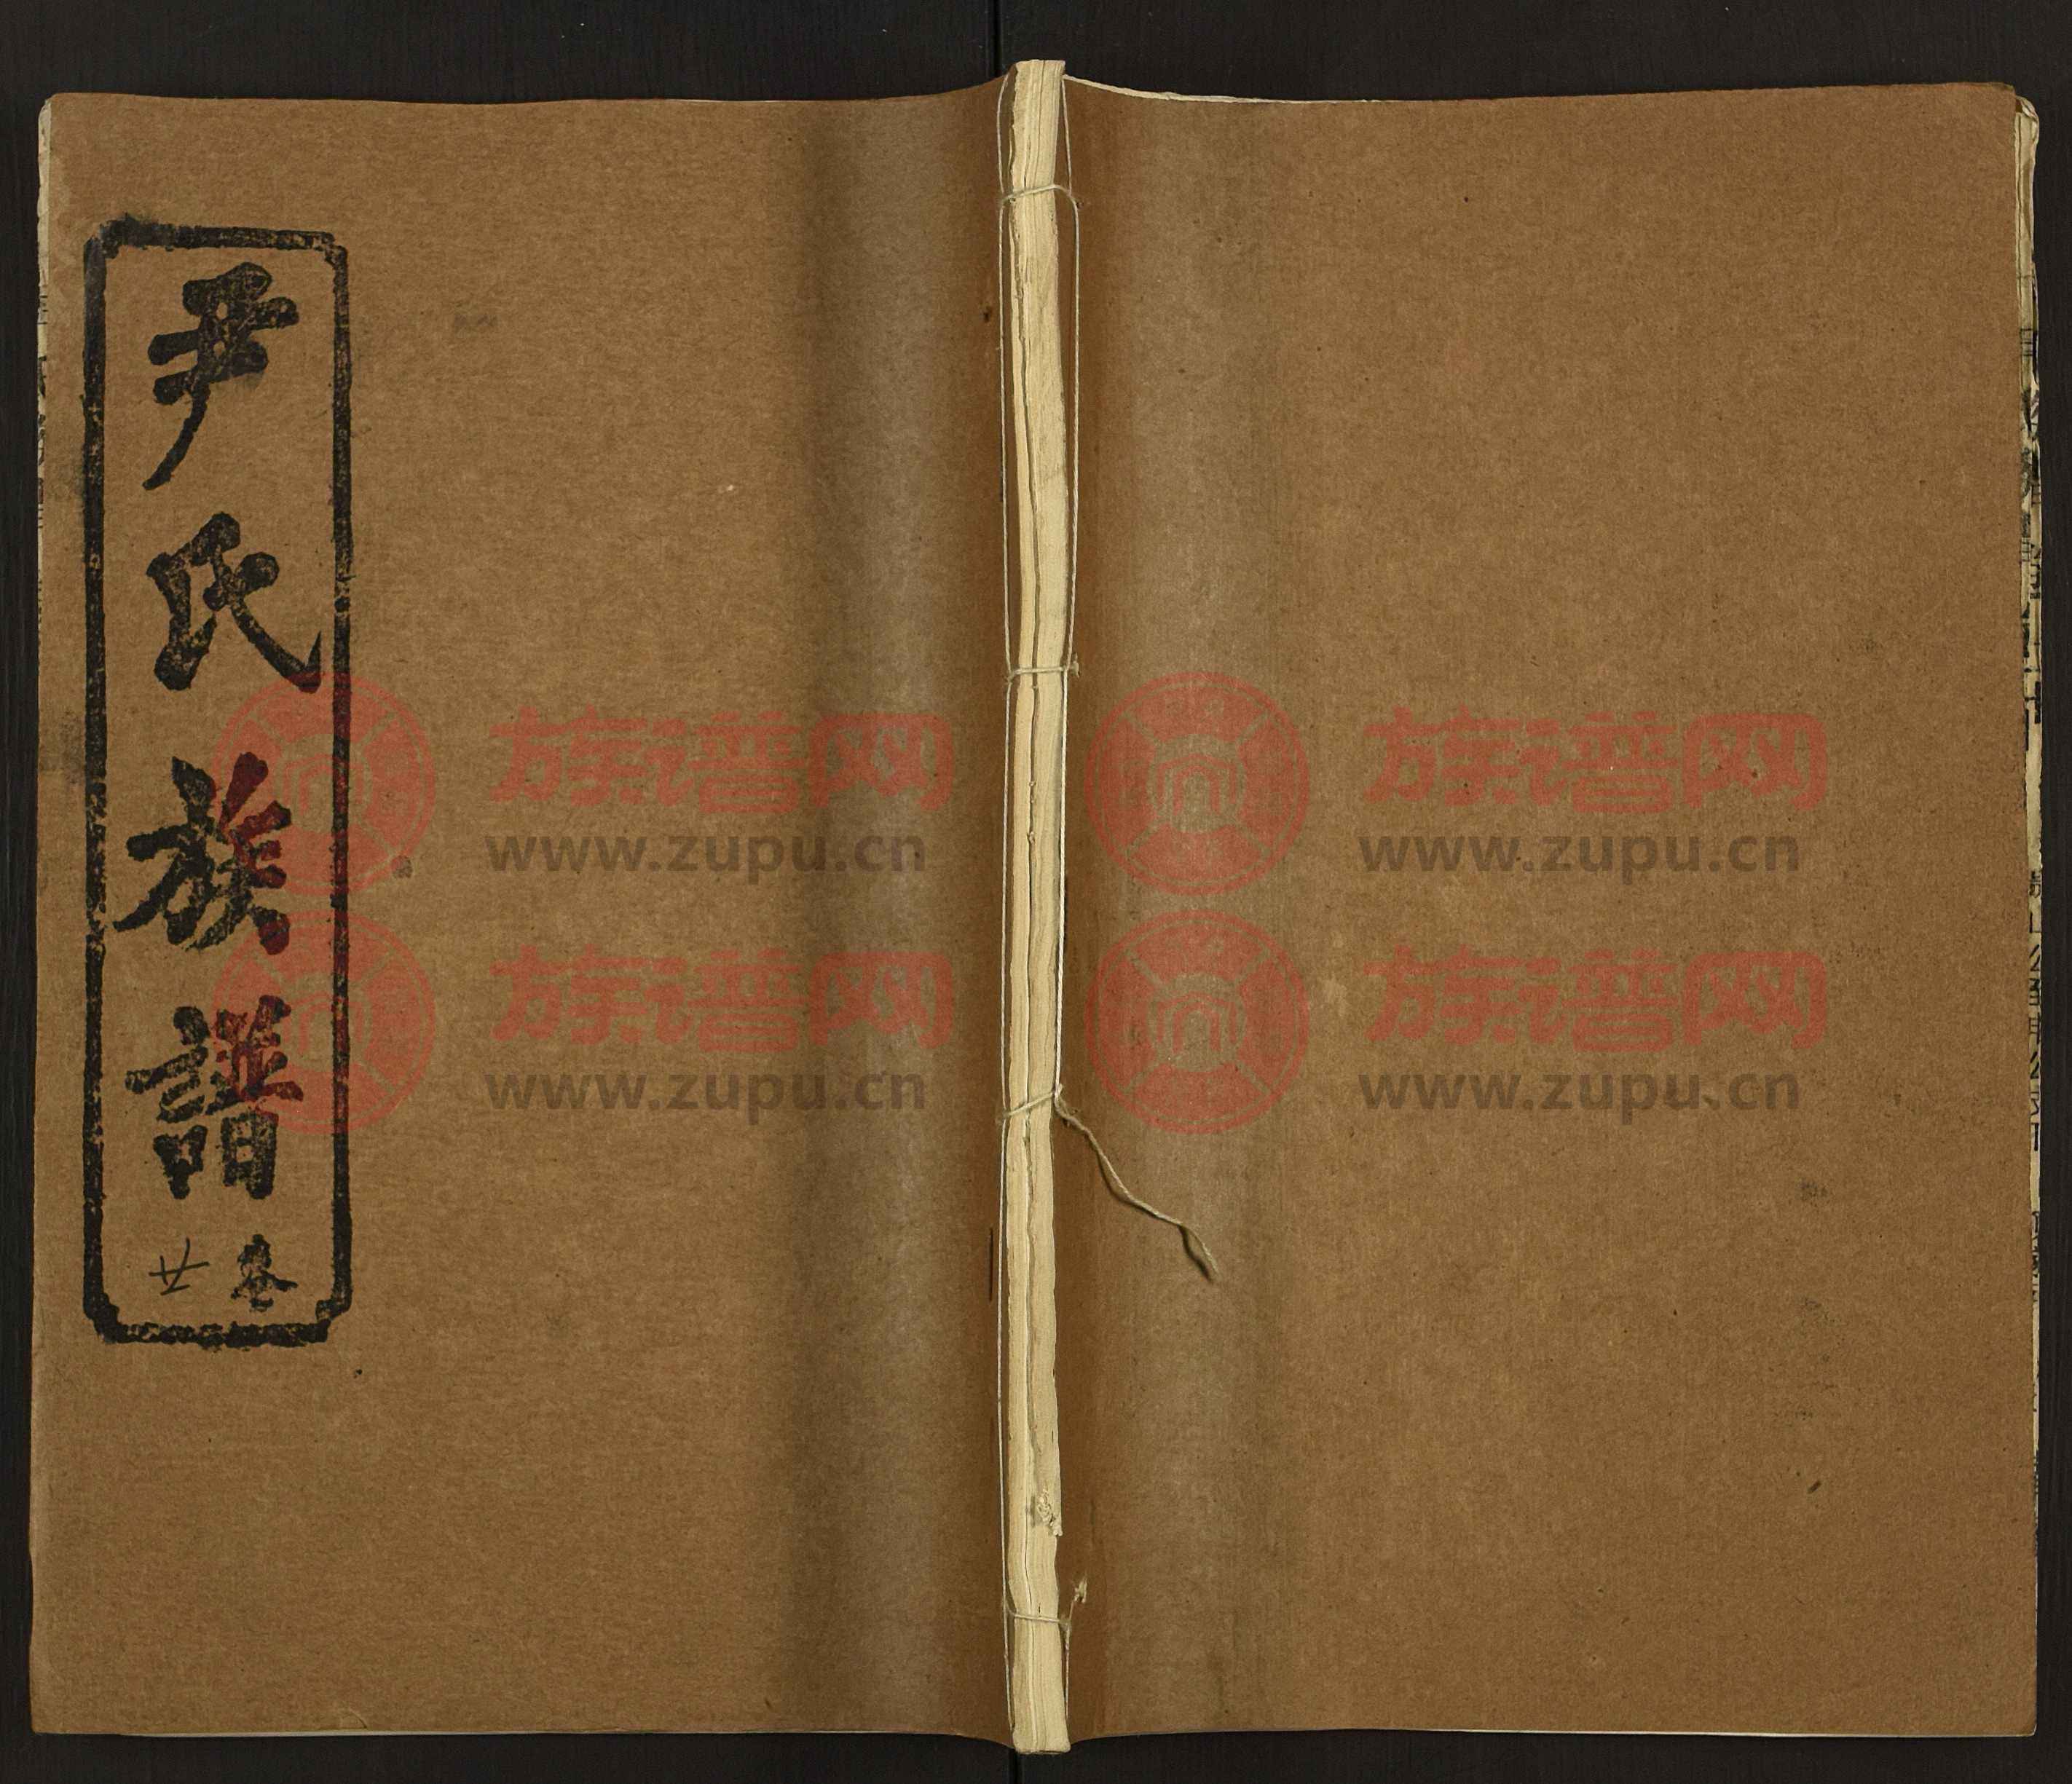 尹氏族譜
卷
廿
族谱网
www.zupu.cn
族谱网
www.zupu.cn
族谱网
www.zupu.cn
族谱网
www.zupu.cn